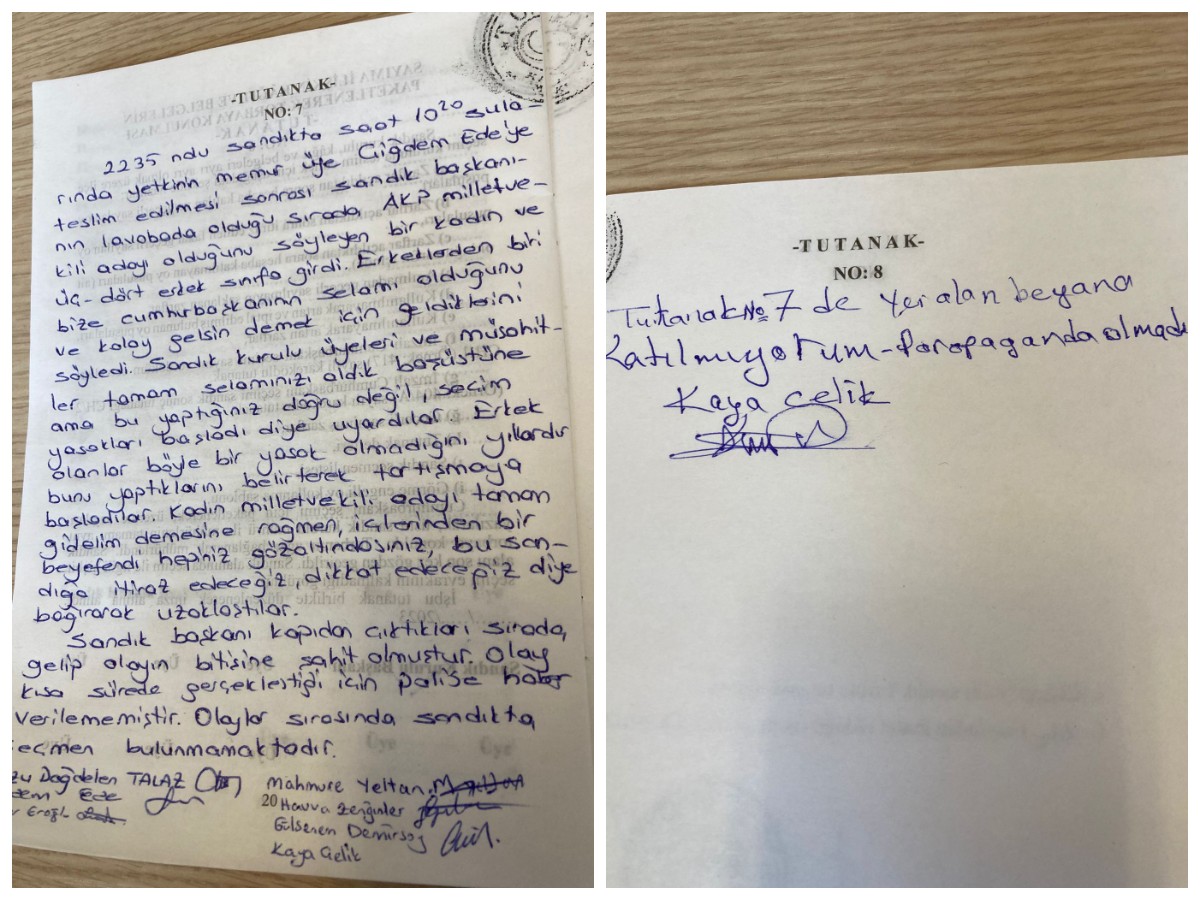 -TUTANAK-
NO: 7
2235 ndu sandıkta saat 10²⁰ sula-
rında yetkinin memur üye Çiğdem Ede'ye
teslim edilmesi sonrası sandık başkanı-
nın lavaboda olduğu sırada AKP milletve-
kili adayı olduğunu söyleyen bir kadın ve
üç-dört erkek sınıfa girdi. Erkeklerden biri
bize cumhurbaşkanının selamı olduğunu
ve kolay gelsin demek için geldiklerini
söyledi. Sandık kurulu üyeleri ve müşahit-
ler tamam selamınızı aldık başüstüne
ama bu yaptığınız doğru değil, seçim
yasakları başladı diye uyardılar. Erkek
olanlar böyle bir yasak olmadığını yıllardır
bunu yaptıklarını belirterek tartışmaya
başladılar. Kadın milletvekili adayı tamam
gidelim demesine rağmen, içlerinden bir
beyefendi hepiniz gözaltındasınız, bu san-
dığa itiraz edeceğiz, dikkat edeceğiz diye
bağırarak uzaklaştılar.
Sandık başkanı kapıdan çıktıkları sırada,
gelip olayın bitişine şahit olmuştur. Olay
kısa sürede gerçekleştiği için polise haber
verilememiştir. Olaylar sırasında sandıkta
eçmen bulunmamaktadır.
zu Dağdelen TALAZ
dem Ede
r Eroğlu
Mahmure Yeltan
20 Havva Zenginler
Gülseren Demirsoy
Kaya Çelik
-TUTANAK-
NO: 8
Tutanak No 7 de yer alan beyana
Katılmıyorum-Poropaganda olmadı
Kaya Çelik